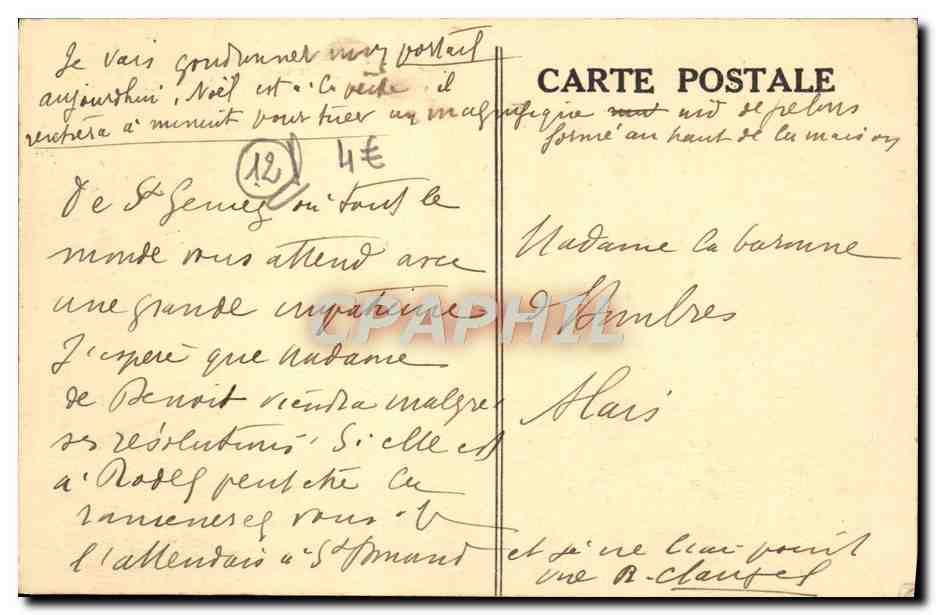 Je vais goudronner mon portail
aujourdhui, Noël est à la pêche, il
rentrera à minuit pour tuer un magnifique nid de frelons
formé au haut de la maison
12 4€
CARTE POSTALE
De St Geniez où tout le
monde vous attend avec
une grande impatience
J'espère que Madame
de Benoit viendra malgré
ses résolutions. Si elle est
à Rodez peut être la
ramenerez vous. Je
l'attendais à St Amand
et je ne l'ai point
vue R. Clausel
Madame la baronne
d'Hombres
Alais
CPAPHIL